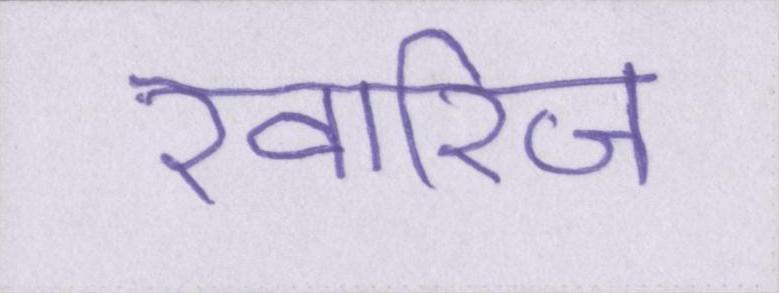 खारिज